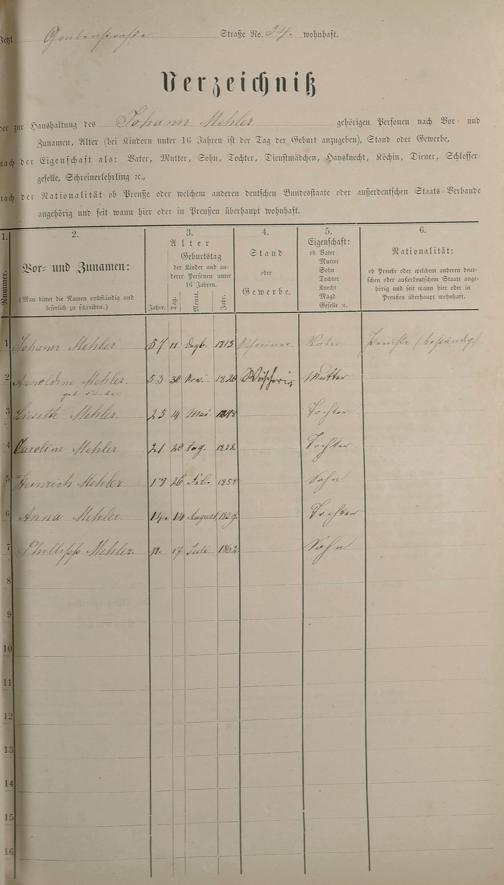 Jetzt Grabenstraße Straße No. 24. wohnhaft.
Verzeichniß
der zur Haushaltung des Johann Mehler gehörigen Personen nach Vor- und
Zunamen, Alter (bei Kindern unter 16 Jahren ist der Tag der Geburt anzugeben), Stand oder Gewerbe,
nach der Eigenschaft als: Vater, Mutter, Sohn, Tochter, Dienstmädchen, Hausknecht, Köchin, Diener, Schlosser-
geselle, Schreinerlehrling ꝛc.,
nach der Nationalität ob Preuße oder welchem anderen deutschen Bundesstaate oder außerdeutschen Staats-Verbande
angehörig und seit wann hier oder in Preußen überhaupt wohnhaft.
1. 2. 3. 4. 5. 6.
Nummer.
Vor- und Zunamen:
(Man bittet die Namen vollständig und
leserlich zu schreiben.)
Alter
Geburtstag
der Kinder und an-
derer Personen unter
16 Jahren.
Jahre. Tag. Monat. Jahr.
Stand
oder
Gewerbe.
Eigenschaft:
ob Vater
Mutter
Sohn
Tochter
Knecht
Magd
Geselle ꝛc.
Nationalität:
ob Preuße oder welchem anderen deut-
schen oder außerdeutschen Staat ange-
hörig und seit wann hier oder in
Preußen überhaupt wohnhaft.
1 Johann Mehler 57 11 1813 Vater Preuße (beständig)
2 Mehler. 53 30 Mutter
geb.
3 Lisseth Mehler 25 14 Mai Tochter
4 Caroline Mehler 21 28 Tochter
5 Heinrich Mehler 26 Sohn
6 Anna Mehler 14. 14 August Tochter
7 Phillipp Mehler 17 Juli 1862 Sohn
8
9
10
11
12
13
14
15
16